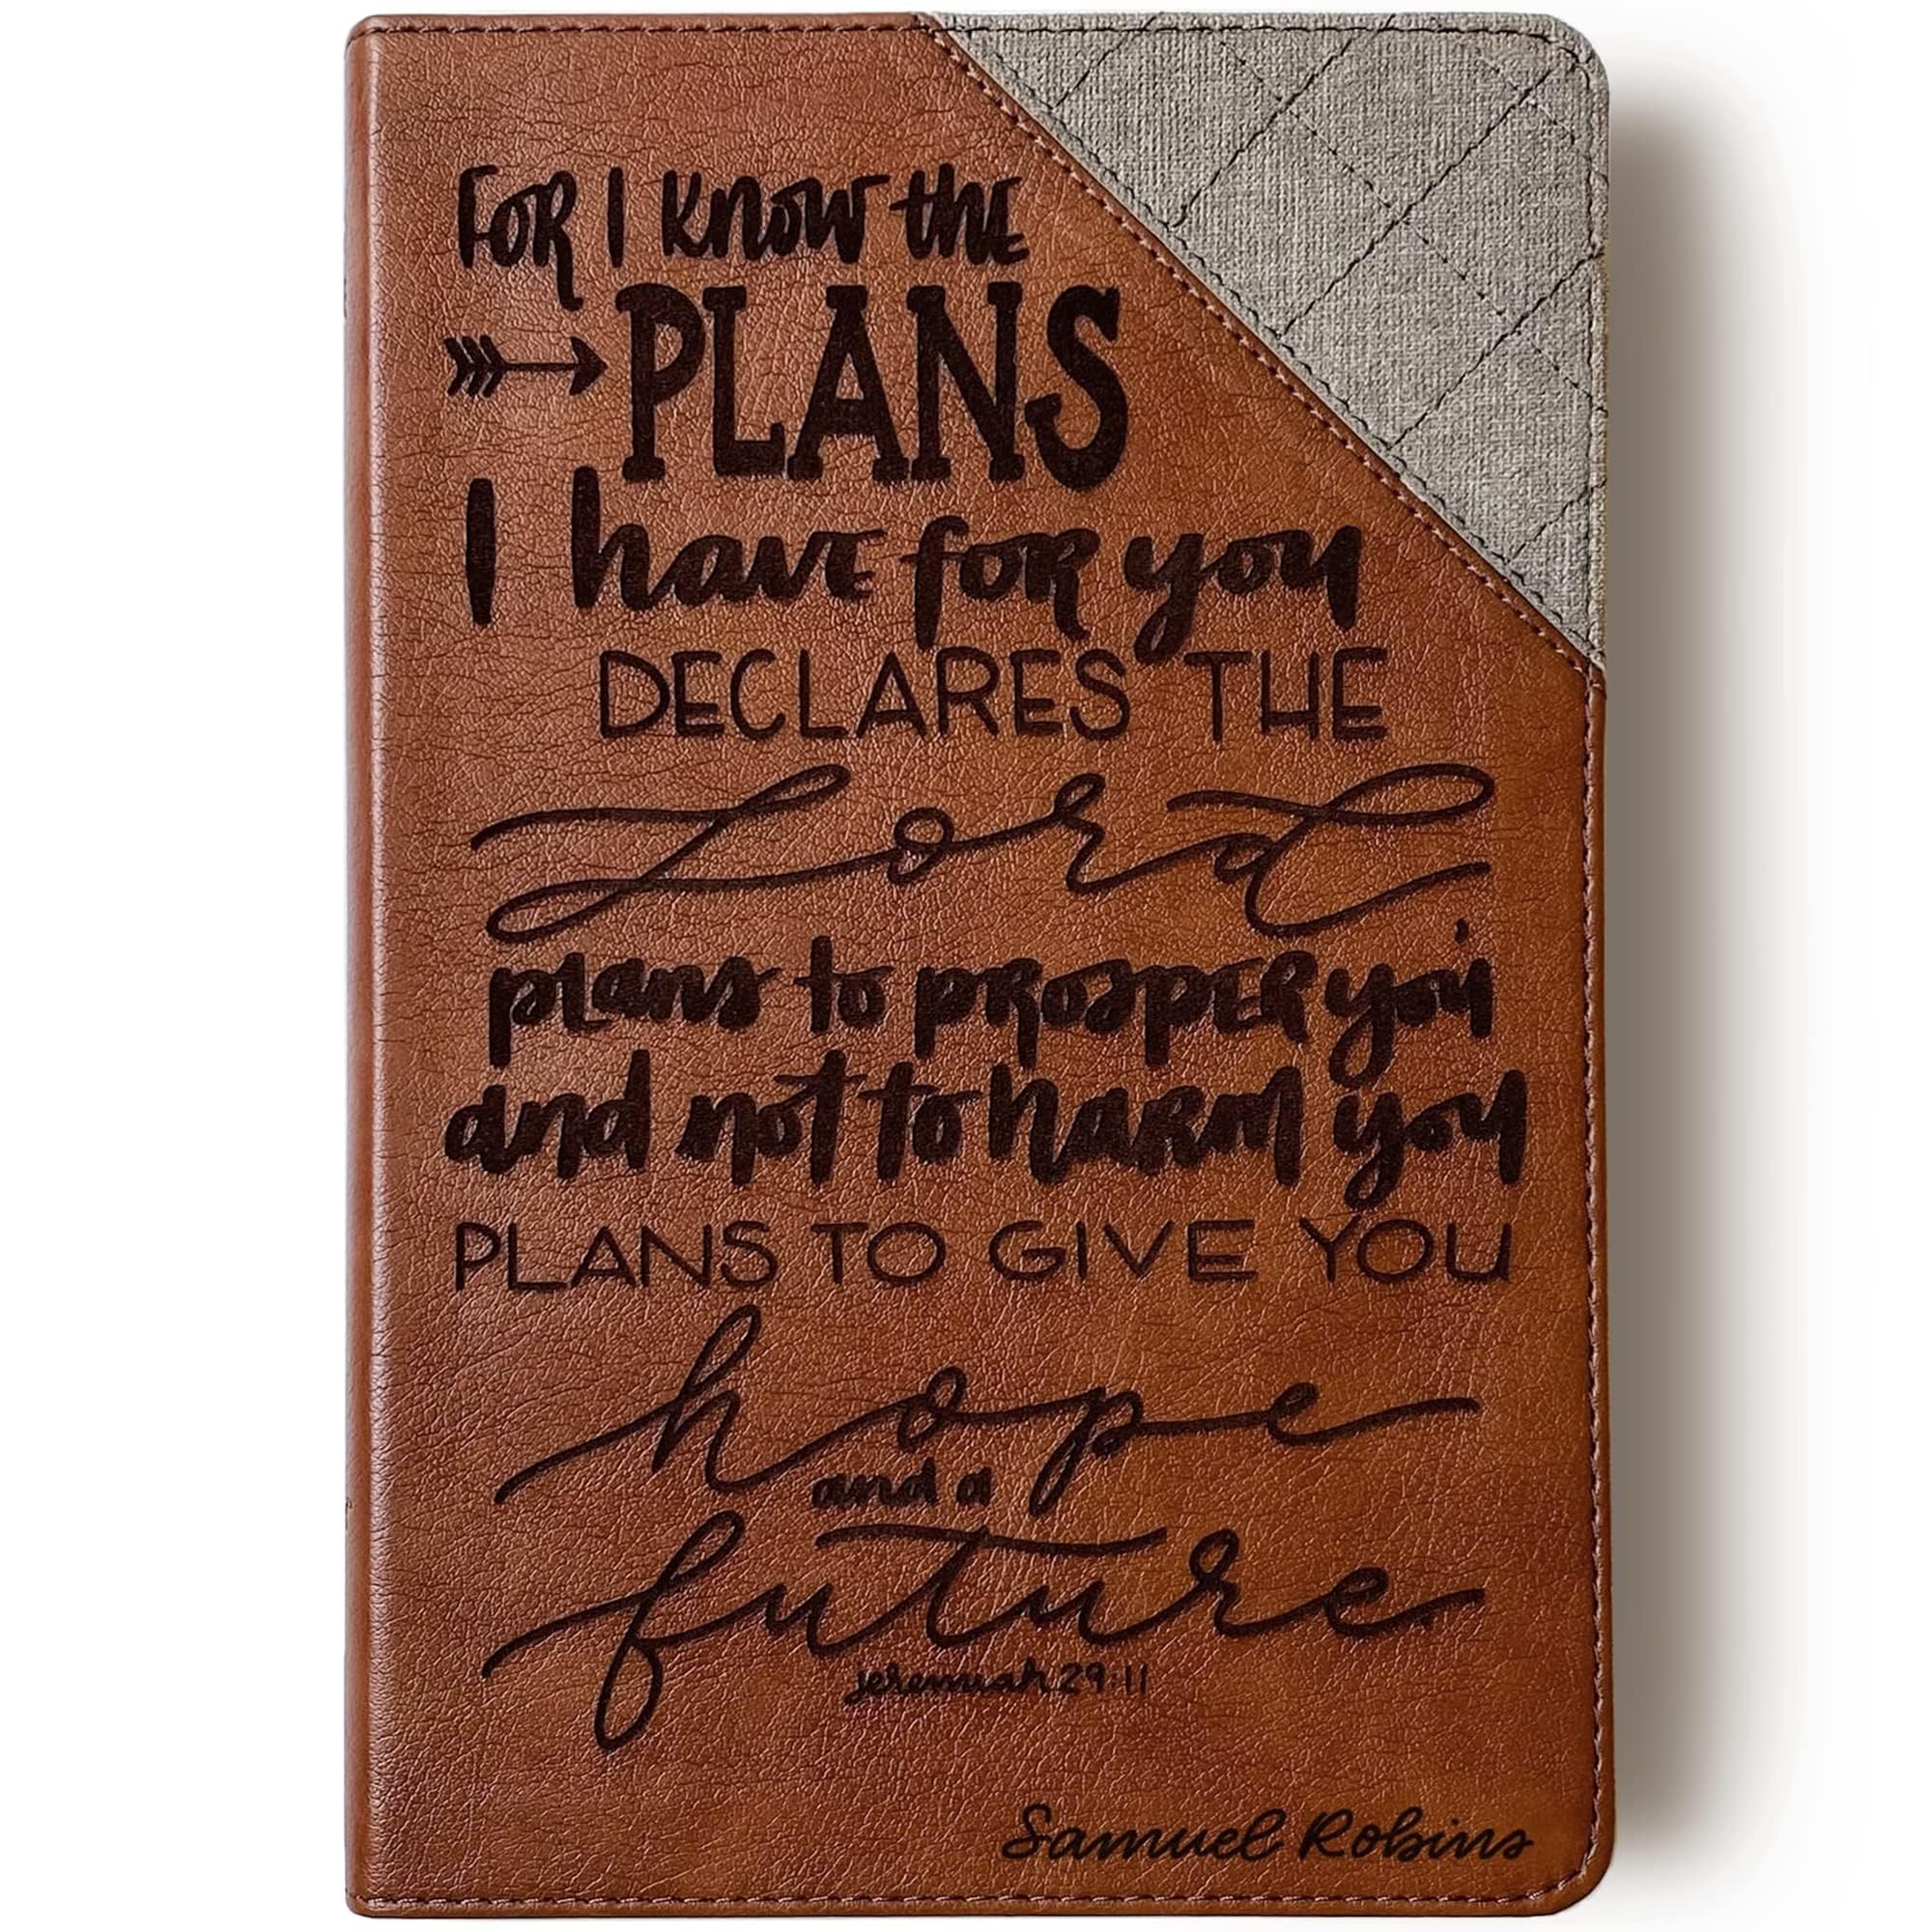 FOR I KNOW the
PLANS
I have for you
DECLARES THE
Lord
plans to prosper you
and not to harm you
PLANS TO GIVE YOU
hope
and a
future
jeremiah 29:11
Samuel Robins